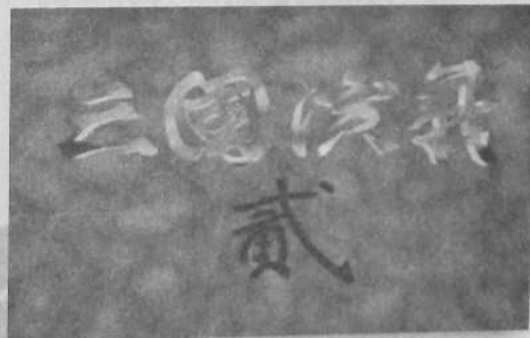 三國演義
貳